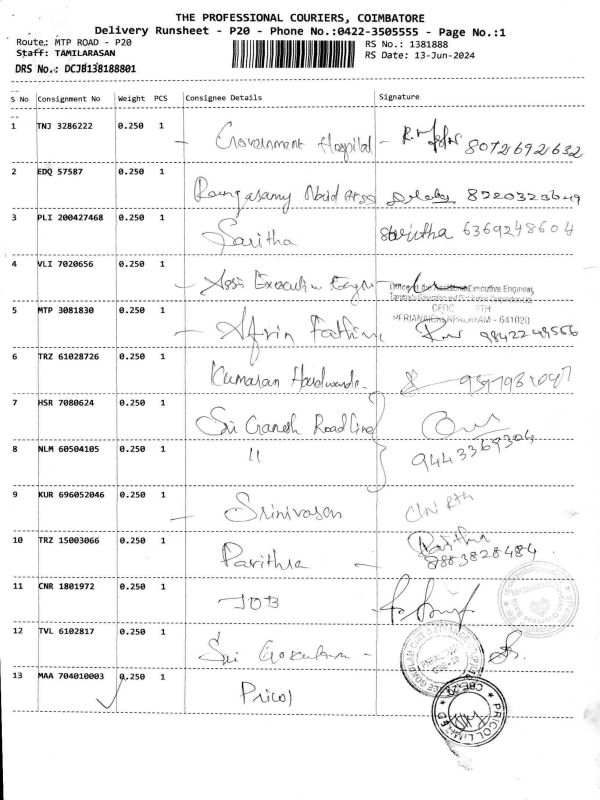 THE PROFESSIONAL COURIERS, COIMBATORE
Delivery Runsheet - P20 - Phone No.:0422-3505555 - Page No.:1
Route: MTP ROAD - P20 RS No.: 1381888
Staff: TAMILARASAN RS Date: 13-Jun-2024
DRS No.: DCJB138188801
S No Consignment No Weight PCS Consignee Details Signature
1 TNJ 3286222 0.250 1 Government Hospital 8072692632
2 EDQ 57587 0.250 1 8220323649
3 PLI 200427468 0.250 1 Saritha Saritha 6369248604
4 VLI 7020656 0.250 1 Assi Executive Engr
Office of the Assistant Executive Engineer
PERIANAICKENPALAYAM - 641020
5 MTP 3081830 0.250 1 Afrin Fathima 9842249556
6 TRZ 61028726 0.250 1 Kumaran Hardware
7 HSR 7080624 0.250 1 Sri Ganesh Roadline
8 NLM 60504105 0.250 1 11 9443369304
9 KUR 696052046 0.250 1 Srinivasan
10 TRZ 15003066 0.250 1 Parithra 9883828484
11 CNR 1801972 0.250 1 IOB
12 TVL 6102817 0.250 1 Sri Gokulam
13 MAA 704010003 0.250 1 Pricol
PRICOL LIMITED